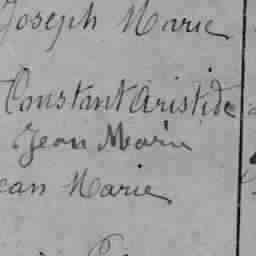 Joseph Marie
Constant Aristide
Jean Marie
ean Marie